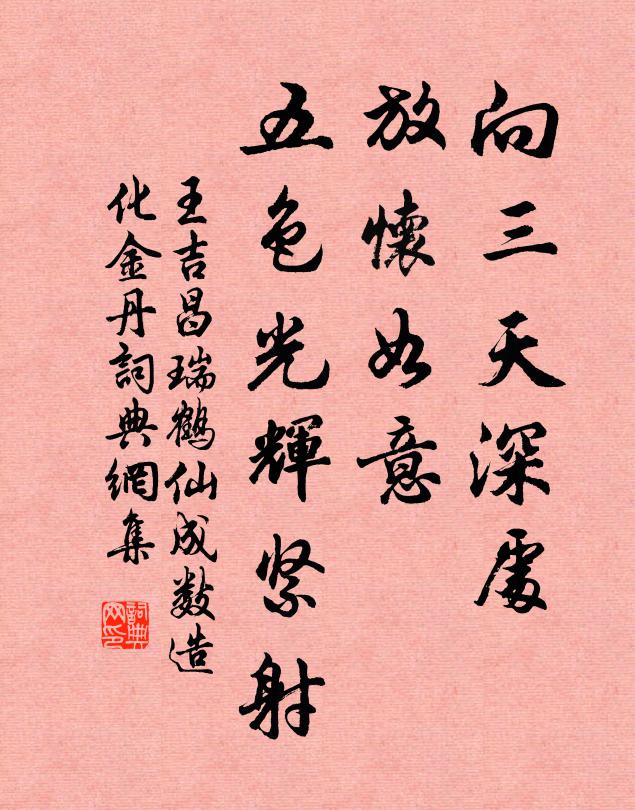 向三天深處
放懷如意
五色光輝紧射
王吉昌瑞鶴仙成數造
化金丹詞典網集
詞典
网印